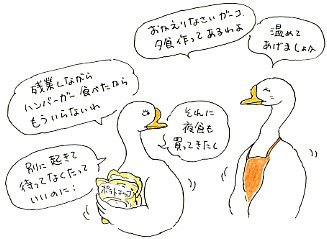 おかえりなさいガーコ
夕食作ってあるわよ
温めて
あげましょか
残業しながら
ハンバーガー食べたから
もういらないわ
それに
夜食も
買ってきたし
別に起きて
待ってなくたって
いいのに!
ポテトチップ